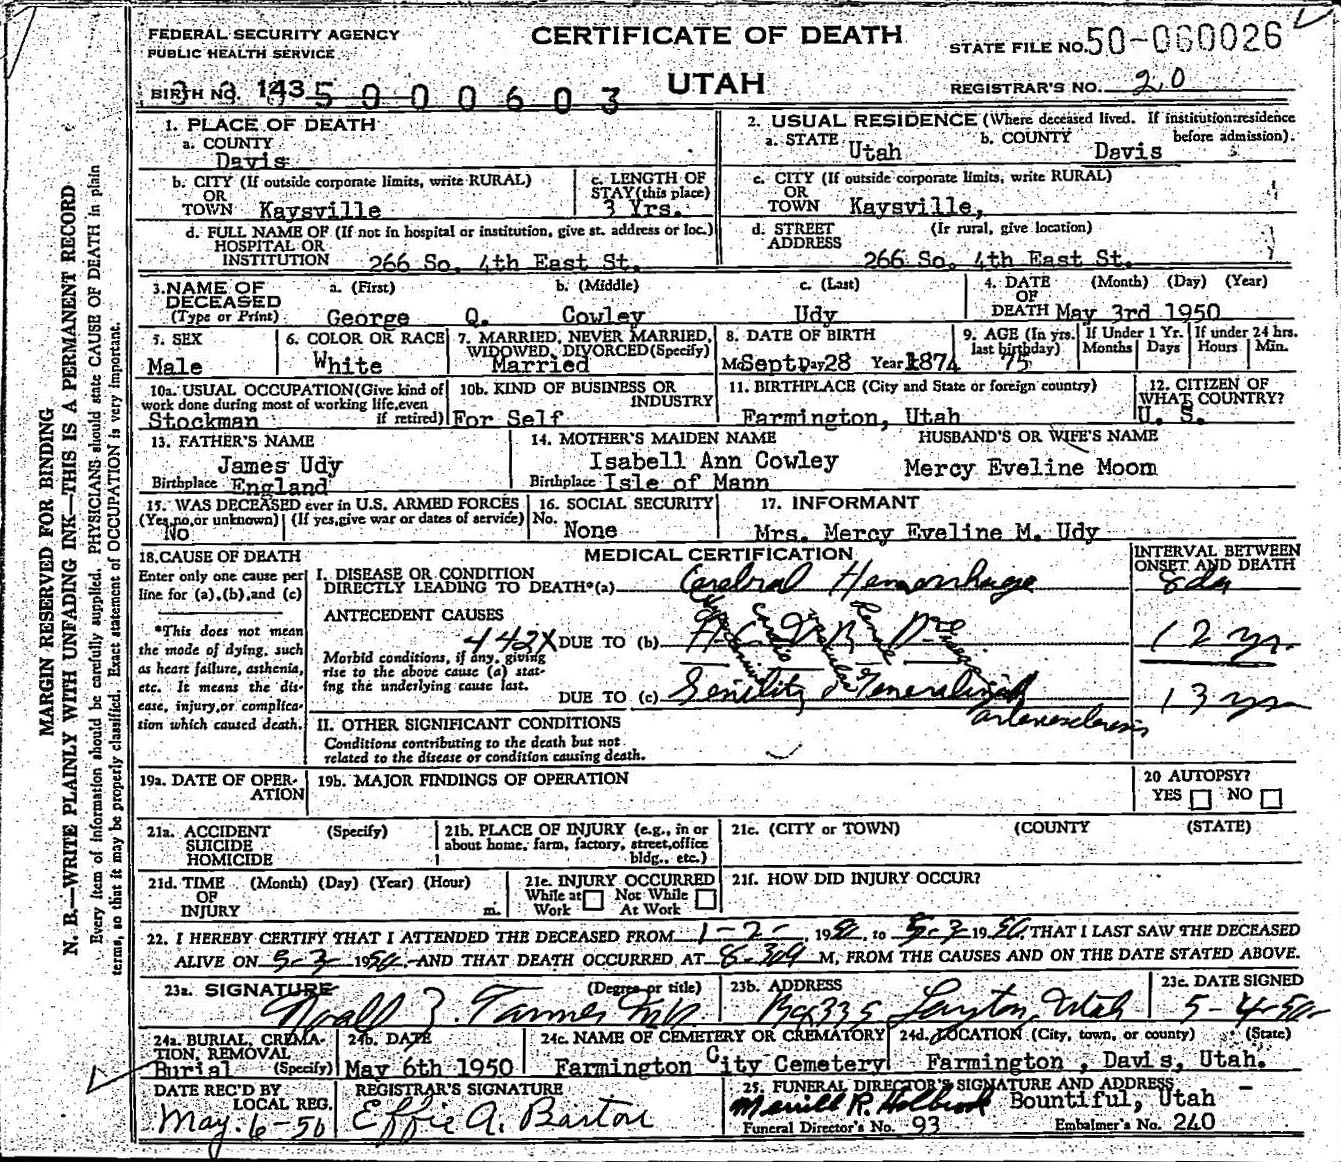 FEDERAL SECURITY AGENCY
PUBLIC HEALTH SERVICE
CERTIFICATE OF DEATH
UTAH
STATE FILE NO. 50-060026
REGISTRAR'S NO. 20
BIRTH NO. 143 5 0 0 0 0 6 0 3
1. PLACE OF DEATH
a. COUNTY
Davis
2. USUAL RESIDENCE (Where deceased lived. If institution:residence before admission).
a. STATE Utah b. COUNTY Davis
b. CITY (If outside corporate limits, write RURAL)
OR
TOWN Kaysville
c. LENGTH OF
STAY (this place)
3 Yrs.
c. CITY (If outside corporate limits, write RURAL)
OR
TOWN Kaysville,
d. FULL NAME OF (If not in hospital or institution, give st. address or loc.)
HOSPITAL OR
INSTITUTION 266 So. 4th East St.
d. STREET (If rural, give location)
ADDRESS
266 So. 4th East St.
3. NAME OF DECEASED
(Type or Print)
a. (First) b. (Middle) c. (Last)
George Q. Cowley Udy
4. DATE OF DEATH (Month) (Day) (Year)
May 3rd 1950
5. SEX
Male
6. COLOR OR RACE
White
7. MARRIED, NEVER MARRIED,
WIDOWED, DIVORCED (Specify)
Married
8. DATE OF BIRTH
Mo Sept Day 28 Year 1874
9. AGE (In yrs. last birthday)
75
If Under 1 Yr. Months Days
If under 24 hrs. Hours Min.
10a. USUAL OCCUPATION (Give kind of
work done during most of working life, even
if retired)
Stockman
10b. KIND OF BUSINESS OR
INDUSTRY
For Self
11. BIRTHPLACE (City and State or foreign country)
Farmington, Utah
12. CITIZEN OF
WHAT COUNTRY?
U. S.
13. FATHER'S NAME
James Udy
Birthplace England
14. MOTHER'S MAIDEN NAME
Isabell Ann Cowley
Birthplace Isle of Mann
HUSBAND'S OR WIFE'S NAME
Mercy Eveline Moom
15. WAS DECEASED ever in U.S. ARMED FORCES
(Yes, no, or unknown) (If yes, give war or dates of service)
No
16. SOCIAL SECURITY
No.
None
17. INFORMANT
Mrs. Mercy Eveline M. Udy
18. CAUSE OF DEATH
Enter only one cause per
line for (a), (b), and (c)
*This does not mean
the mode of dying, such
as heart failure, asthenia,
etc. It means the dis-
ease, injury, or complica-
tion which caused death.
MEDICAL CERTIFICATION
INTERVAL BETWEEN
ONSET AND DEATH
I. DISEASE OR CONDITION
DIRECTLY LEADING TO DEATH*(a) Cerebral Hemorrhage 8 da
ANTECEDENT CAUSES
442X DUE TO (b) H. C. V. R. Dis
Hypertensive Cardio Vascular Renal Disease
12 yr.
Morbid conditions, if any, giving
rise to the above cause (a) stat-
ing the underlying cause last.
DUE TO (c) Senility & Generalized
arteriosclerosis
13 yr
II. OTHER SIGNIFICANT CONDITIONS
Conditions contributing to the death but not
related to the disease or condition causing death.
19a. DATE OF OPER-
ATION
19b. MAJOR FINDINGS OF OPERATION
20 AUTOPSY?
YES NO
21a. ACCIDENT (Specify)
SUICIDE
HOMICIDE
21b. PLACE OF INJURY (e.g., in or
about home, farm, factory, street, office
bldg., etc.)
21c. (CITY or TOWN) (COUNTY (STATE)
21d. TIME (Month) (Day) (Year) (Hour)
OF
INJURY m.
21e. INJURY OCCURRED
While at Work Not While At Work
21f. HOW DID INJURY OCCUR?
22. I HEREBY CERTIFY THAT I ATTENDED THE DECEASED FROM 1-2-, 1950, to 5-3 1950, THAT I LAST SAW THE DECEASED
ALIVE ON 5-3 1950, AND THAT DEATH OCCURRED AT M, FROM THE CAUSES AND ON THE DATE STATED ABOVE.
23a. SIGNATURE (Degree or title)
Noall Z. Tanner M.D.
23b. ADDRESS
Layton, Utah
23c. DATE SIGNED
5-4-50
24a. BURIAL, CREMA-
TION, REMOVAL
(Specify)
Burial
24b. DATE
May 6th 1950
24c. NAME OF CEMETERY OR CREMATORY
Farmington City Cemetery
24d. LOCATION (City, town, or county) (State)
Farmington, Davis, Utah.
DATE REC'D BY
LOCAL REG.
May. 6-50
REGISTRAR'S SIGNATURE
Effie A. Barton
25. FUNERAL DIRECTOR'S SIGNATURE AND ADDRESS
Merrill R. Holbrook Bountiful, Utah
Funeral Director's No. 93 Embalmer's No. 240
MARGIN RESERVED FOR BINDING
N. B.—WRITE PLAINLY WITH UNFADING INK—THIS IS A PERMANENT RECORD
Every item of information should be carefully supplied. PHYSICIANS should state CAUSE OF DEATH in plain
terms, so that it may be properly classified. Exact statement of OCCUPATION is very important.